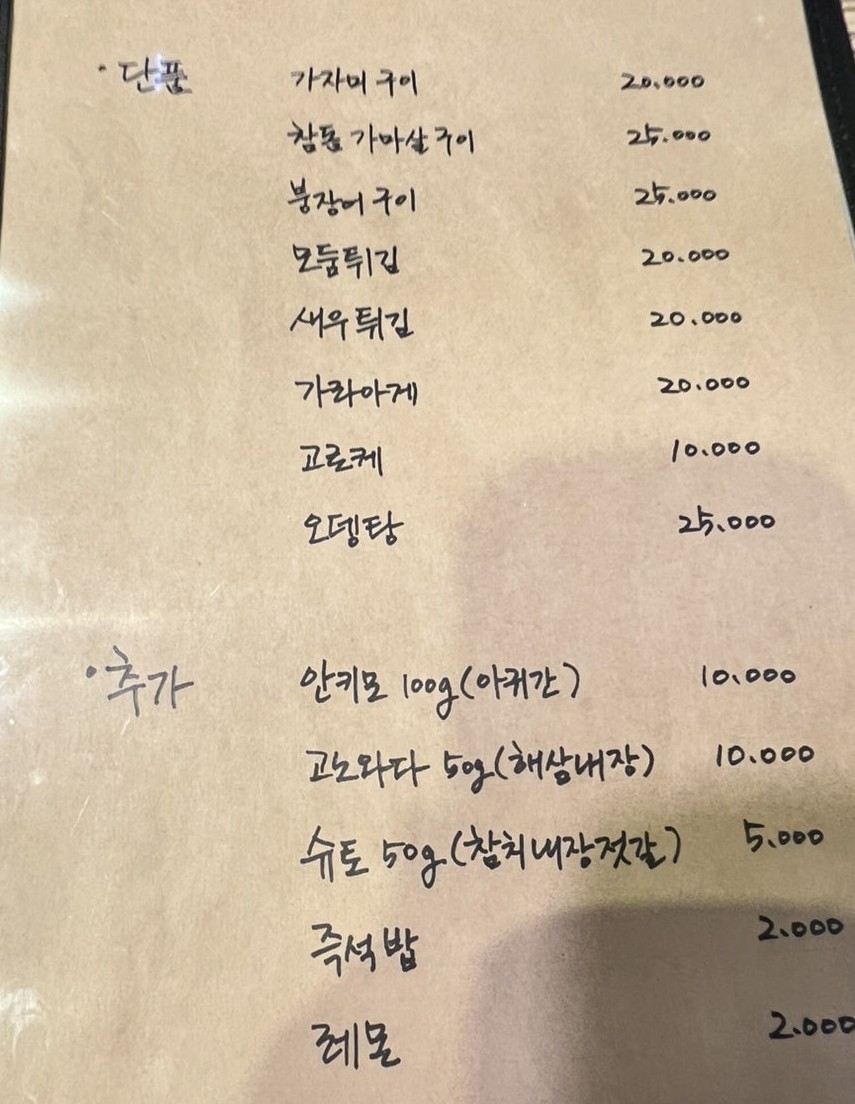 · 단품 가자미 구이 20.000
참돔 가마살 구이 25.000
붕장어 구이 25.000
모둠튀김 20.000
새우튀김 20.000
가라아게 20.000
고로케 10.000
오뎅탕 25.000
· 추가 안키모 100g (아귀간) 10.000
고노와다 50g (해삼내장) 10.000
슈토 50g (참치내장젓갈) 5.000
즉석밥 2.000
레몬 2.000